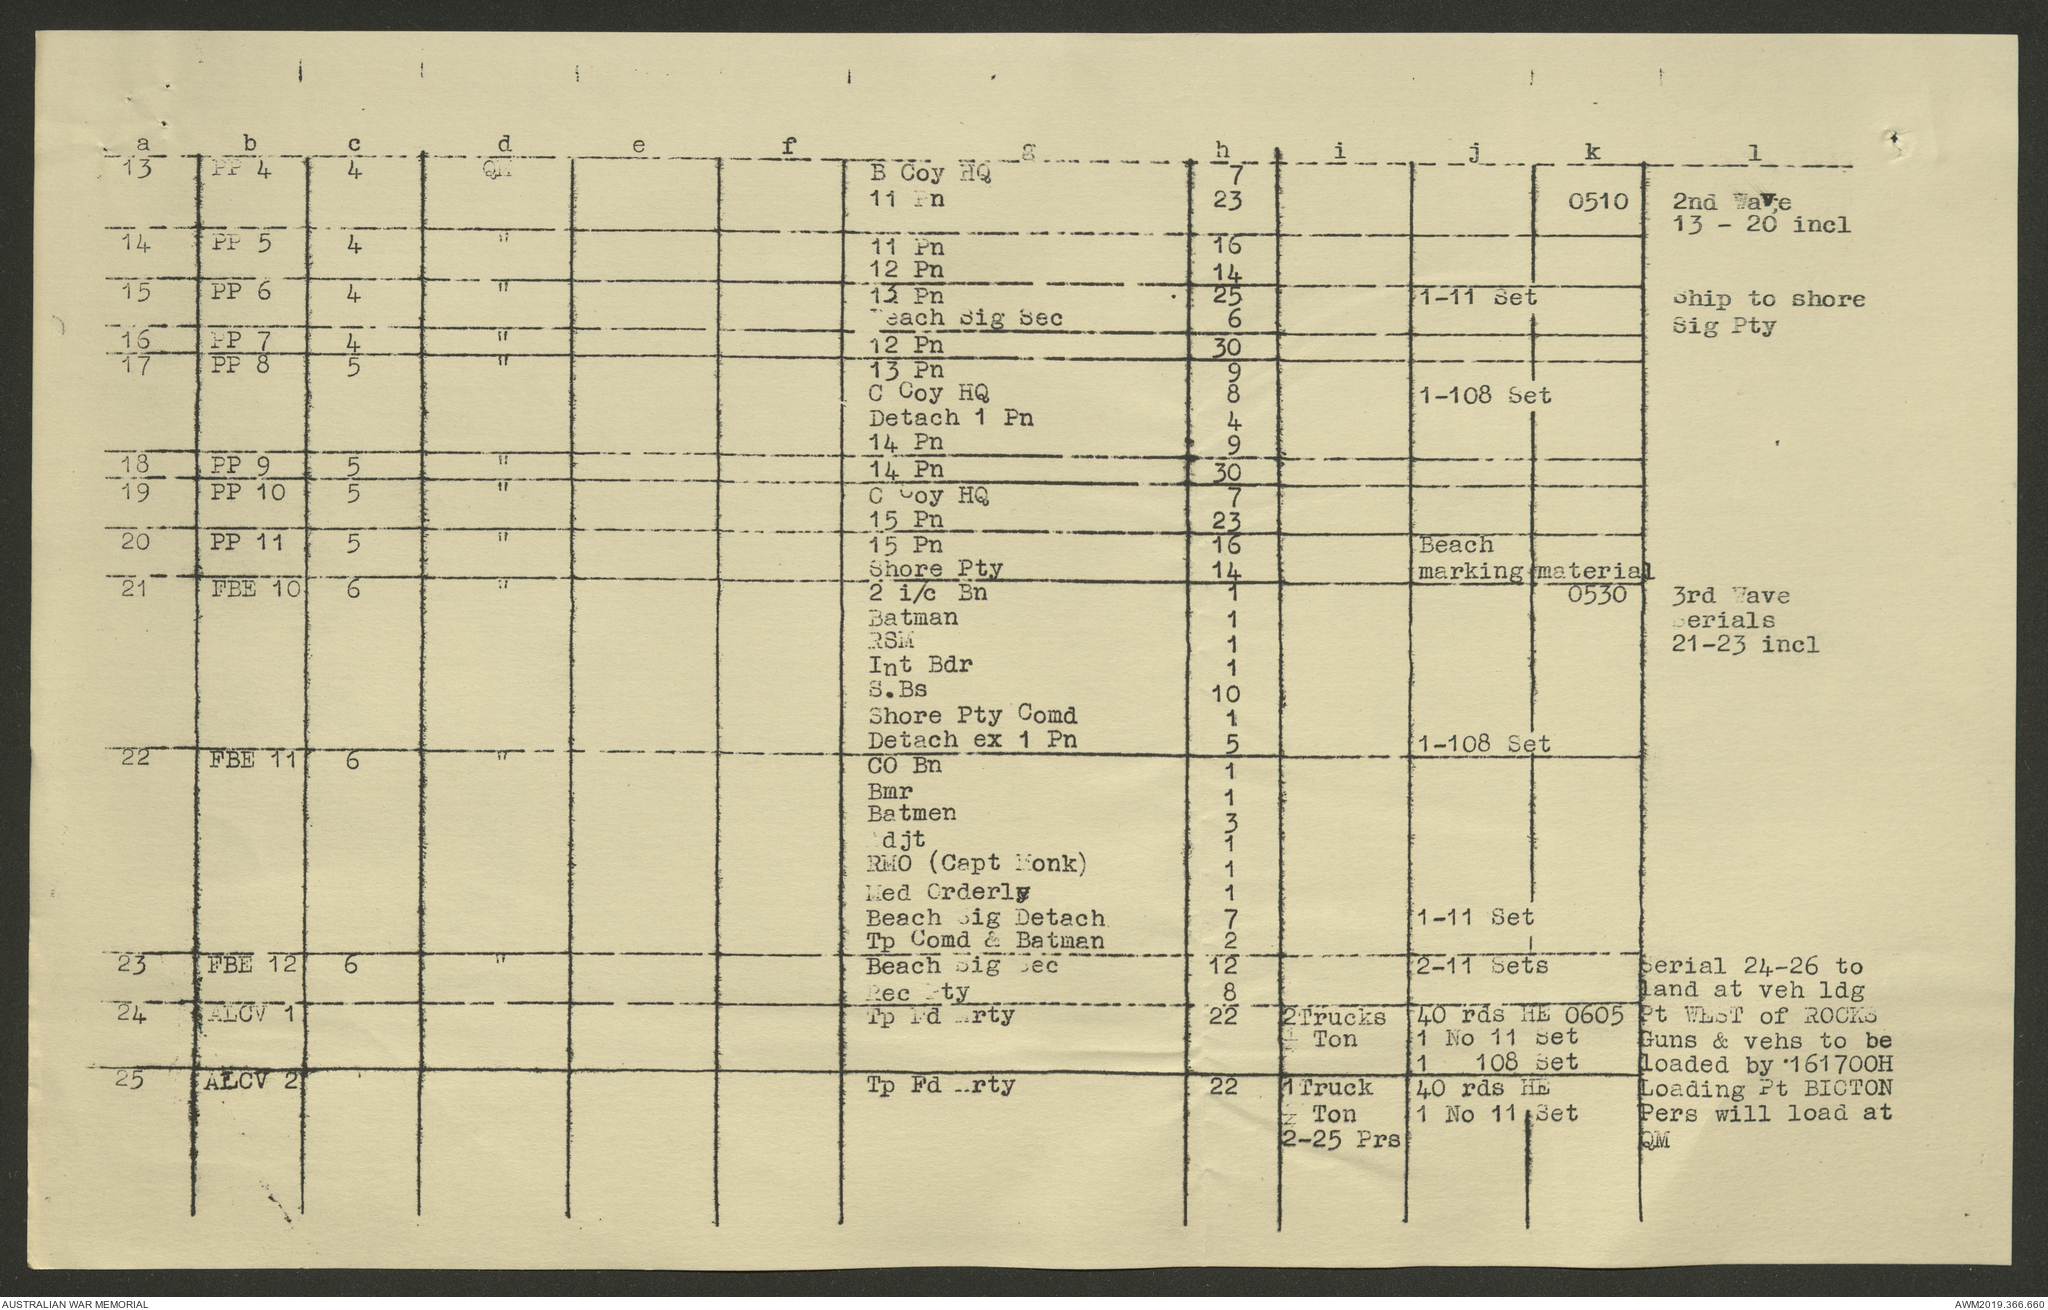 a b c d e f g h i j k l
13 PP 4 4 QM B Coy HQ 7
11 Pn 23 0510 2nd Wave
13 - 20 incl
14 PP 5 4 " 11 Pn 16
12 Pn 14
15 PP 6 4 " 13 Pn 25 1-11 Set Ship to shore
Beach Sig Sec 6 Sig Pty
16 PP 7 4 " 12 Pn 30
17 PP 8 5 " 13 Pn 9
C Coy HQ 8 1-108 Set
Detach 1 Pn 4
14 Pn 9
18 PP 9 5 " 14 Pn 30
19 PP 10 5 " C Coy HQ 7
15 Pn 23
20 PP 11 5 " 15 Pn 16 Beach
Shore Pty 14 marking material
21 FBE 10 6 " 2 i/c Bn 1 0530 3rd Wave
Batman 1 Serials
RSM 1 21-23 incl
Int Bdr 1
S.Bs 10
Shore Pty Comd 1
Detach ex 1 Pn 5 1-108 Set
22 FBE 11 6 " CO Bn 1
Bmr 1
Batmen 3
Adjt 1
RMO (Capt Monk) 1
Med Orderly 1
Beach Sig Detach 7 1-11 Set
Tp Comd & Batman 2
23 FBE 12 6 " Beach Sig Sec 12 2-11 Sets Serial 24-26 to
Rec Pty 8 land at veh ldg
24 ALCV 1 Tp Fd Arty 22 2Trucks 40 rds HE 0605 Pt WEST of ROCKS
Ton 1 No 11 Set Guns & vehs to be
1 108 Set loaded by 161700H
25 ALCV 2 Tp Fd Arty 22 1Truck 40 rds HE Loading Pt BICTON
½ Ton 1 No 11 Set Pers will load at
2-25 Prs QM
AUSTRALIAN WAR MEMORIAL AWM2019.366.660